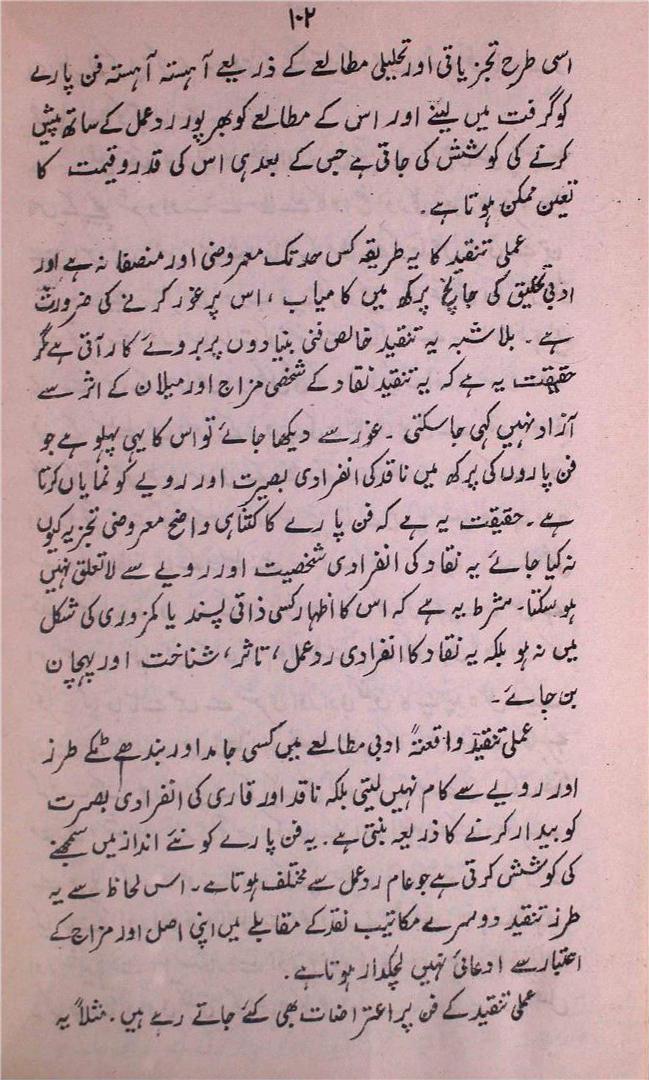 ۱۰۲
اسی طرح تجزیاتی اور تحلیلی مطالعے کے ذریعے آہستہ آہستہ فن پارے
کو گرفت میں لینے اور اس کے مطالعے کو بھرپور ردعمل کے ساتھ پیش
کرنے کی کوشش کی جاتی ہے جس کے بعد ہی اس کی قدر و قیمت کا
تعین ممکن ہوتا ہے۔
عملی تنقید کا یہ طریقہ کس حد تک معروضی اور منصفانہ ہے اور
ادبی تخلیق کی جانچ پرکھ میں کامیاب، اس پر غور کرنے کی ضرورت
ہے۔ بلاشبہ یہ تنقید خالص فنی بنیادوں پر بروئے کار آتی ہے مگر
حقیقت یہ ہے کہ یہ تنقید نقاد کے شخصی مزاج اور میلان کے اثر سے
آزاد نہیں کہی جا سکتی۔ غور سے دیکھا جائے تو اس کا یہی پہلو ہے جو
فن پاروں کی پرکھ میں ناقد کی انفرادی بصیرت اور رویے کو نمایاں کرتا
ہے۔ حقیقت یہ ہے کہ فن پارے کا کتنا ہی واضح معروضی تجزیہ کیوں
نہ کیا جائے یہ نقاد کی انفرادی شخصیت اور رویے سے لاتعلق نہیں
ہو سکتا۔ شرط یہ ہے کہ اس کا اظہار کسی ذاتی پسند یا کمزوری کی شکل
میں نہ ہو بلکہ یہ نقاد کا انفرادی ردعمل، تاثر، شناخت اور پہچان
بن جائے۔
عملی تنقید واقعتہً ادبی مطالعے میں کسی جامد اور بندھے ٹکے طرز
اور رویے سے کام نہیں لیتی بلکہ ناقد اور قاری کی انفرادی بصیرت
کو بیدار کرنے کا ذریعہ بنتی ہے۔ یہ فن پارے کو نئے انداز میں سمجھنے
کی کوشش کرتی ہے جو عام ردعمل سے مختلف ہوتا ہے۔ اس لحاظ سے یہ
طرز تنقید دوسرے مکاتیب نقد کے مقابلے میں اپنی اصل اور مزاج کے
اعتبار سے ادعائی نہیں لچکدار ہوتا ہے۔
عملی تنقید کے فن پر اعتراضات بھی کئے جاتے رہے ہیں۔ مثلاً یہ